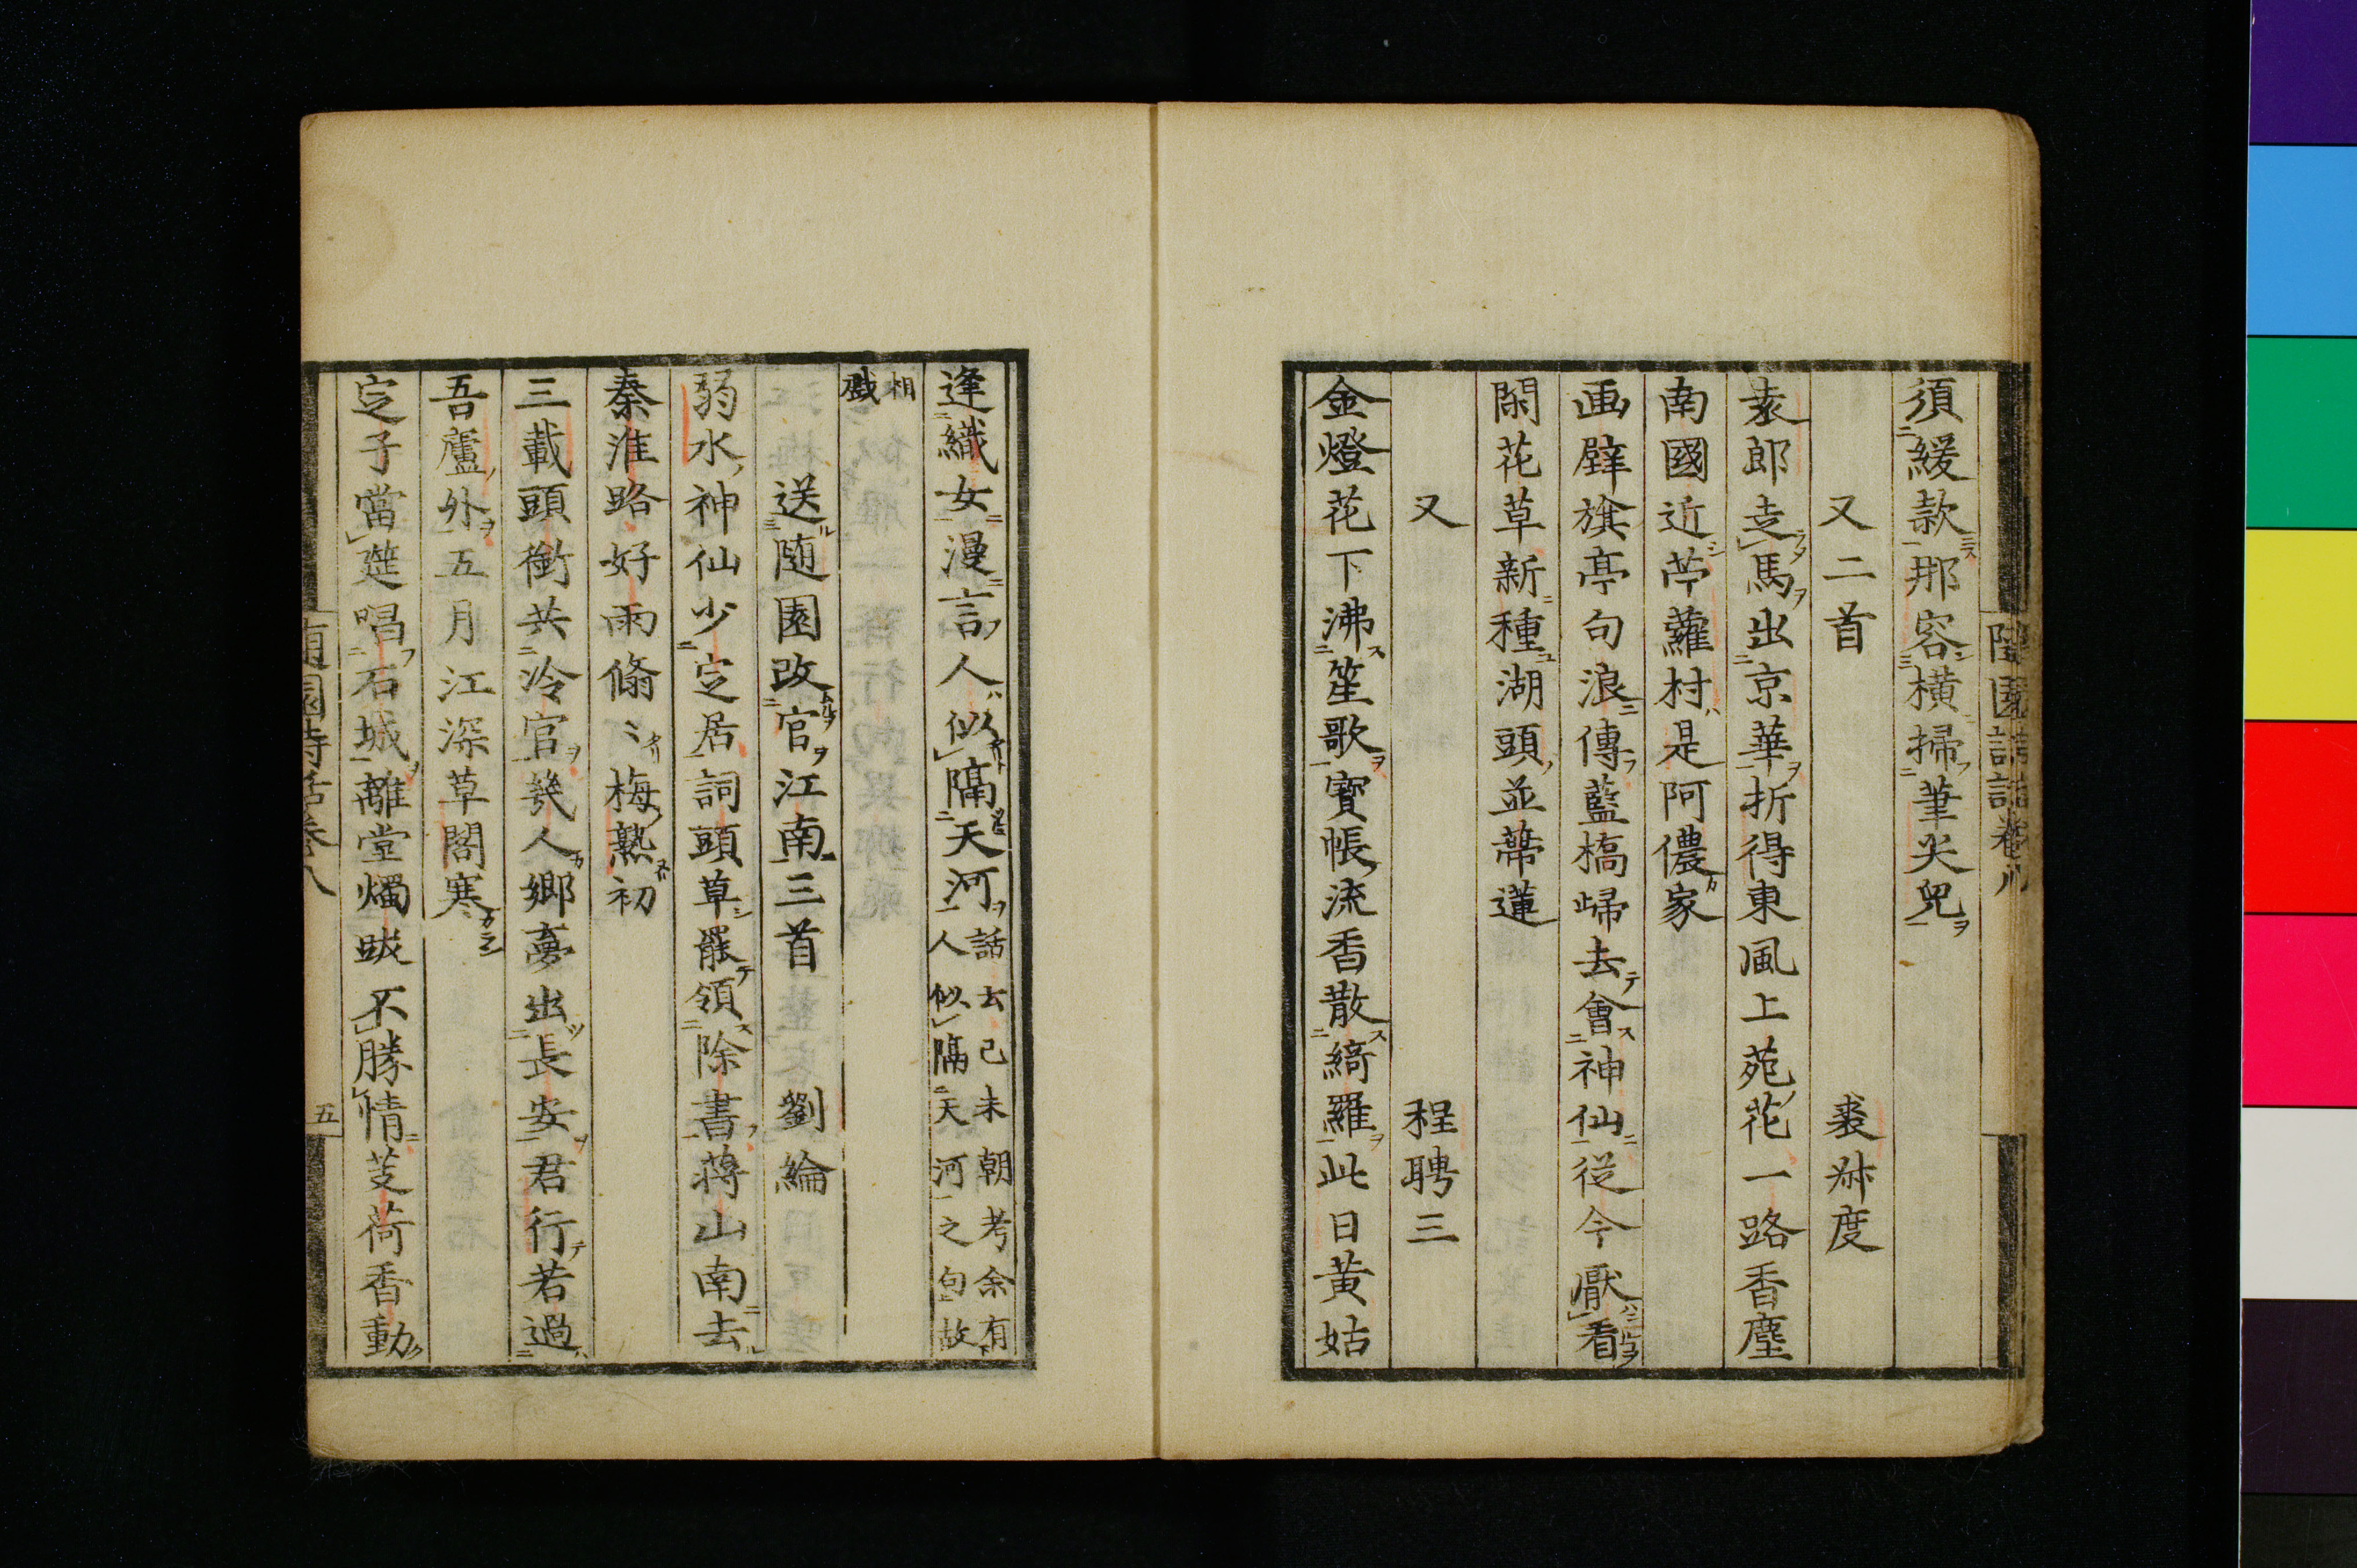 隨園詩話卷八
須緩款那容橫掃筆尖兒
又二首 裘叔度
袁郎走馬出京華折得東風上苑花一路香塵
南國近苧蘿村是阿儂家
画壁旗亭句浪傳藍橋歸去會神仙從今厭看
閑花草新種湖頭並蒂蓮
又 程聘三
金燈花下沸笙歌寶帳流香散綺羅此日黃姑
逢織女漫言人似隔天河
話去己未朝考余有
人似隔天河之句故
相
戲
送随園改官江南三首 劉綸
弱水神仙少定居詞頭草罷領除書蒋山南去
秦淮路好雨翛〻梅熟初
三載頭銜共冷官幾人鄉夢出長安君行若過
吾廬外五月江深草閣寒
定子當筵唱石城離堂燭跋不勝情芰荷香動
隨園詩話卷八
五